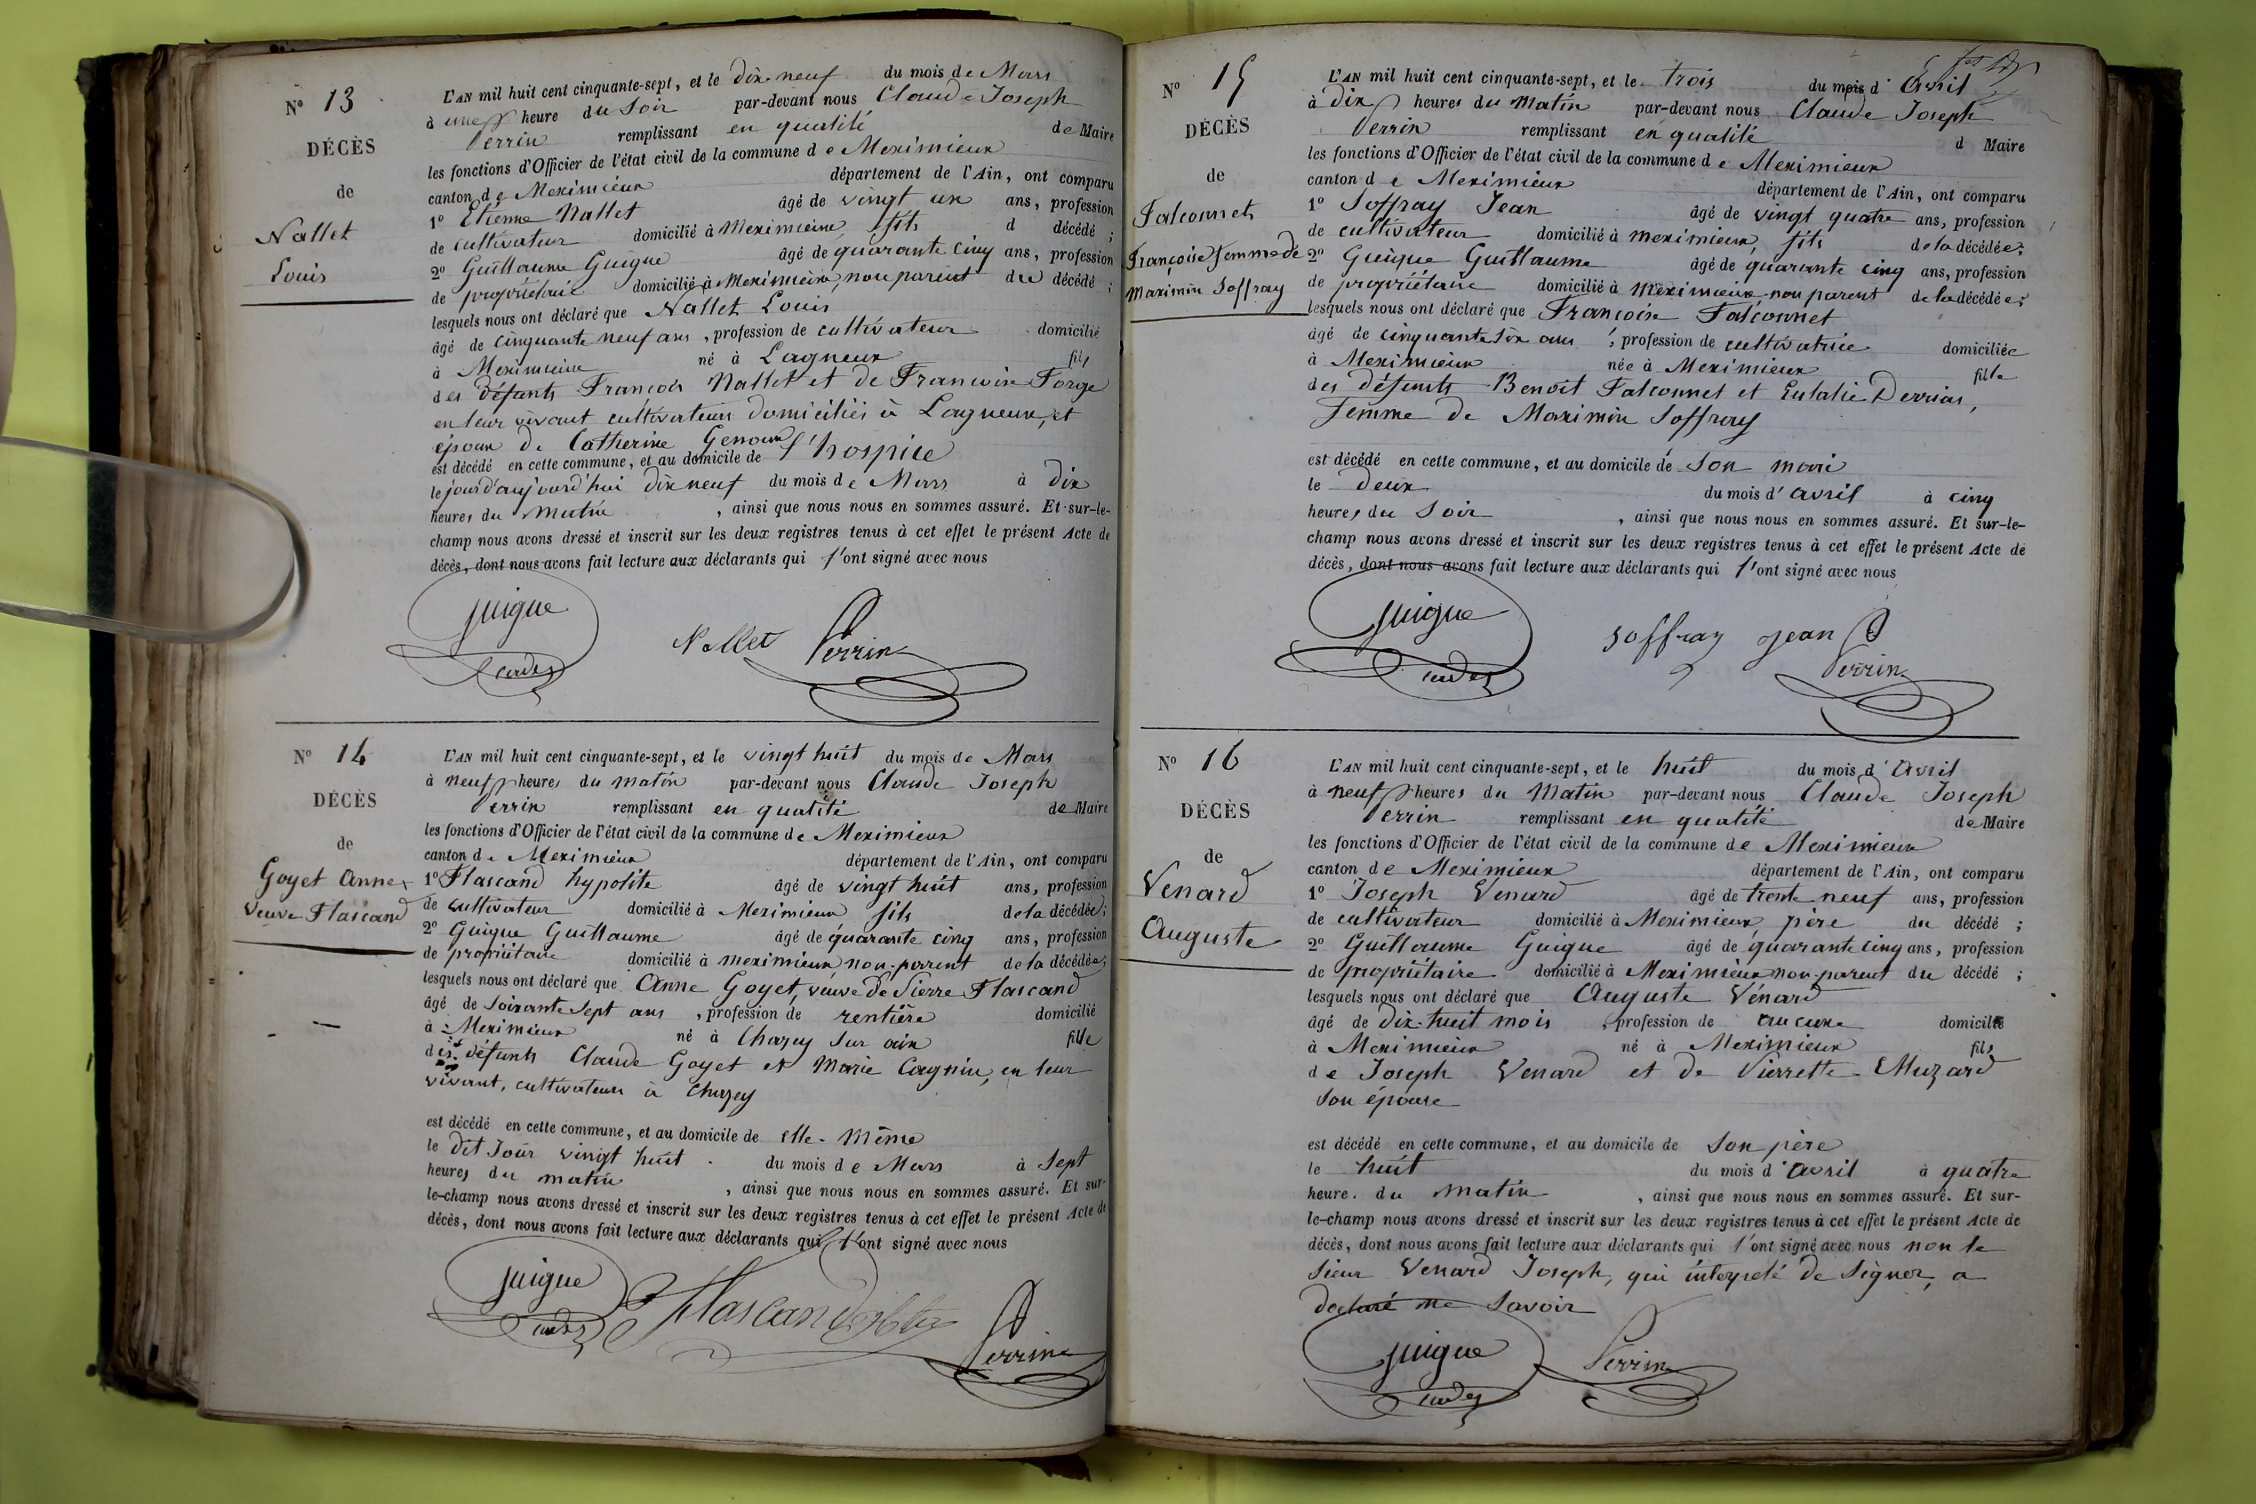 N° 13
DÉCÈS
de
Nallet
Louis
L'AN mil huit cent cinquante-sept, et le dix neuf du mois de Mars
à une heure du Soir par-devant nous Claude Joseph
Perrin remplissant en qualité de Maire
les fonctions d'Officier de l'état civil de la commune de Meximieux
canton de Meximieux département de l'Ain, ont comparu
1° Etienne Nallet âgé de vingt un ans, profession
de cultivateur domicilié à Meximieux, fils d décédé ;
2° Guillaume Guigue âgé de quarante cinq ans, profession
de propriétaire domicilié à Meximieux, non parent du décédé ;
lesquels nous ont déclaré que Nallet Louis
âgé de cinquante neuf ans, profession de cultivateur domicilié
à Meximieux né à Lagneux fils
des défunts François Nallet et de Françoise Forge
en leur vivant cultivateurs domiciliés à Lagneux, et
époux de Catherine Genoux
est décédé en cette commune, et au domicile de l'hospice
le jourd'aujourd'hui dix neuf du mois de Mars à dix
heures du matin, ainsi que nous nous en sommes assuré. Et sur-le-
champ nous avons dressé et inscrit sur les deux registres tenus à cet effet le présent Acte de
décès, dont nous avons fait lecture aux déclarants qui l'ont signé avec nous
Guigue
Nallet Perrin
N° 14
DÉCÈS
de
Goyet Anne
Veuve Flascand
L'AN mil huit cent cinquante-sept, et le vingt huit du mois de Mars
à neuf heures du matin par-devant nous Claude Joseph
Perrin remplissant en qualité de Maire
les fonctions d'Officier de l'état civil de la commune de Meximieux
canton de Meximieux département de l'Ain, ont comparu
1° Flascand hypolite âgé de vingt huit ans, profession
de cultivateur domicilié à Meximieux fils de la décédée ;
2° Guigue Guillaume âgé de quarante cinq ans, profession
de propriétaire domicilié à meximieux non-parent de la décédée ;
lesquels nous ont déclaré que Anne Goyet, veuve de Pierre Flascand
âgé de soixante sept ans, profession de rentière domicilié
à Meximieux né à Chazey sur ain fille
des défunts Claude Goyet et Marie Cagnin, en leur
vivant, cultivateurs à Chazey
est décédé en cette commune, et au domicile de elle-même
le dit Jour vingt huit du mois de Mars à Sept
heures du matin, ainsi que nous nous en sommes assuré. Et sur-
le-champ nous avons dressé et inscrit sur les deux registres tenus à cet effet le présent Acte de
décès, dont nous avons fait lecture aux déclarants qui l'ont signé avec nous
Guigue
Flascand
Perrin
N° 15
DÉCÈS
de
Falconnet
Françoise femme de
Maximin Soffray
L'AN mil huit cent cinquante-sept, et le trois du mois d'Avril
à dix heures du Matin par-devant nous Claude Joseph
Perrin remplissant en qualité d Maire
les fonctions d'Officier de l'état civil de la commune de Meximieux
canton de Meximieux département de l'Ain, ont comparu
1° Soffray Jean âgé de vingt quatre ans, profession
de cultivateur domicilié à meximieux, fils de la décédée ;
2° Guigue Guillaume âgé de quarante cinq ans, profession
de propriétaire domicilié à meximieux non parent de la décédée ;
lesquels nous ont déclaré que Françoise Falconnet
âgé de cinquante six ans, profession de cultivatrice domiciliée
à Meximieux née à Meximieux fille
des défunts Benoit Falconnet et Eulalie Derrias,
femme de Maximin Soffray
est décédé en cette commune, et au domicile de Son mari
le deux du mois d'avril à cinq
heures du Soir, ainsi que nous nous en sommes assuré. Et sur-le-
champ nous avons dressé et inscrit sur les deux registres tenus à cet effet le présent Acte de
décès, dont nous avons fait lecture aux déclarants qui l'ont signé avec nous
Guigue
Soffray Jean
Perrin
N° 16
DÉCÈS
de
Venard
Auguste
L'AN mil huit cent cinquante-sept, et le huit du mois d'Avril
à neuf heures du Matin par-devant nous Claude Joseph
Perrin remplissant en qualité de Maire
les fonctions d'Officier de l'état civil de la commune de Meximieux
canton de Meximieux département de l'Ain, ont comparu
1° Joseph Venard âgé de trente neuf ans, profession
de cultivateur domicilié à Meximieux, père du décédé ;
2° Guillaume Guigue âgé de quarante cinq ans, profession
de propriétaire domicilié à Meximieux non-parent du décédé ;
lesquels nous ont déclaré que Auguste Vénard
âgé de dix-huit mois, profession de aucune domicilié
à Meximieux né à Meximieux fils
de Joseph Venard et de Pierrette Muzard
son épouse
est décédé en cette commune, et au domicile de Son père
le huit du mois d'avril à quatre
heure du matin, ainsi que nous nous en sommes assuré. Et sur-
le-champ nous avons dressé et inscrit sur les deux registres tenus à cet effet le présent Acte de
décès, dont nous avons fait lecture aux déclarants qui l'ont signé avec nous non le
Sieur Venard Joseph, qui interpelé de Signer, a
declaré ne Savoir
Guigue Perrin